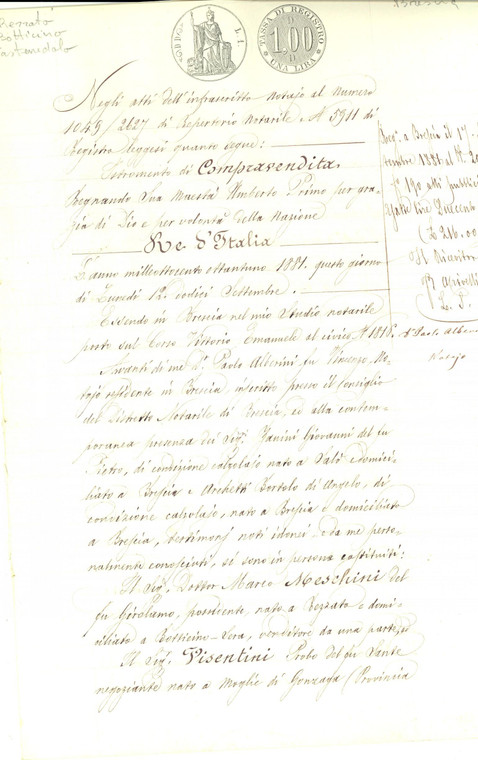 Rezzato
Botticino
Castenedolo
Brescia
TASSA DI REGISTRO
D 1.00 D
UNA LIRA
Negli atti dell'infrascritto Notajo al Numero
1049/2027 di Repertorio Notarile e N 5911 di
Registro leggesi quanto segue:
Istromento di Compravendita
Regnando Sua Maestà Umberto Primo per gra-
zia di Dio e per volontà della Nazione
Re d'Italia
L'anno milleottocento ottantuno 1881. questo giorno
di Lunedì 12. dodici Settembre.
Essendo in Brescia nel mio Studio notarile
posto sul Corso Vittorio Emanuele al civico N 1818.
Avanti di me Dr. Paolo Alberini fu Vincenzo No-
tajo residente in Brescia, inscritto presso il Consiglio
del Distretto Notarile di Brescia, ed alla contem-
poranea presenza dei Sigr. Zanini Giovanni del fu
Pietro, di condizione calzolajo nato a Salò e domici-
liato a Brescia e Archetti Bortolo di Angelo, di
condizione calzolajo, nato a Brescia e domiciliato
a Brescia, testimonj noti idonei e da me perso-
nalmente conosciuti, si sono in persona costituiti:
Il Sigr. Dottor Marco Meschini del
fu Girolamo, possidente, nato a Rezzato e domi-
ciliato a Botticino-Sera, venditore da una parte, ed
Il Sigr. Visentini Probo del fu Sante
negoziante nato a Moglie di Gonzaga (Provincia
Reg. a Brescia il 17.
tembre 1881 al N. 20
f. 190 atti pubblici
gate lire Duecento
(L 216.00
Il Ricevitore
L. S.
Dr Paolo Alberini
Notajo